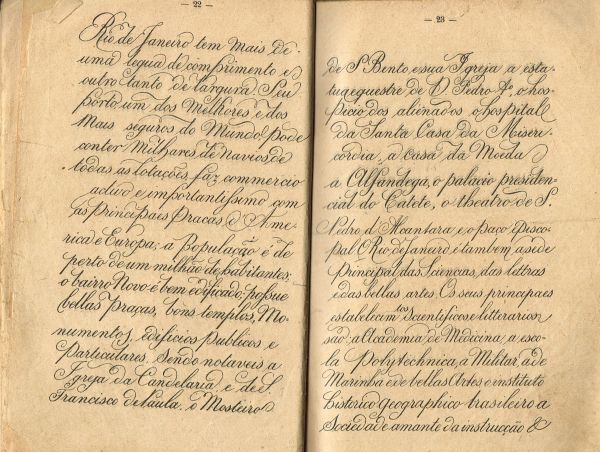 — 22 —
Rio de Janeiro tem mais de
uma legua de comprimento e
outro tanto de largura. Seu
porto, um dos melhores e dos
mais seguros do Mundo, pode
conter milhares de navios de
todas as lotações, faz commercio
activo e importantissimo com
as principais Praças d'Ame-
rica e Europa; a População é de
perto de um milhão de habitantes;
o bairro Novo é bem edificado, possue
bellas praças, bons templos, Mo-
numentos, edificios publicos e
particulares. Sendo notaveis a
Igreja da Candelaria, e de S.
Francisco de Paula, o Mosteiro
— 23 —
de S. Bento, e sua Igreja, a esta-
tua equestre de D. Pedro 1º, o hos-
picio dos alienados, o hospital
da Santa Casa da Miseri-
cordia, a casa da Moeda
a Alfandega, o palacio presiden-
cial do Catete, o theatro de S.
Pedro d'Alcantara, e o paço Episco-
pal. O Rio de Janeiro é tambem a séde
principal das Sciencias, das lettras
e das bellas artes. Os seus principaes
estabelecimtos Scientificos e litterarios
são: a Academia de Medicina; a esco-
la Polytechnica, a Militar, a de
Marinha e de bellas Artes e instituto
historico Geographico brasileiro a
Sociedade amante da instrucção &